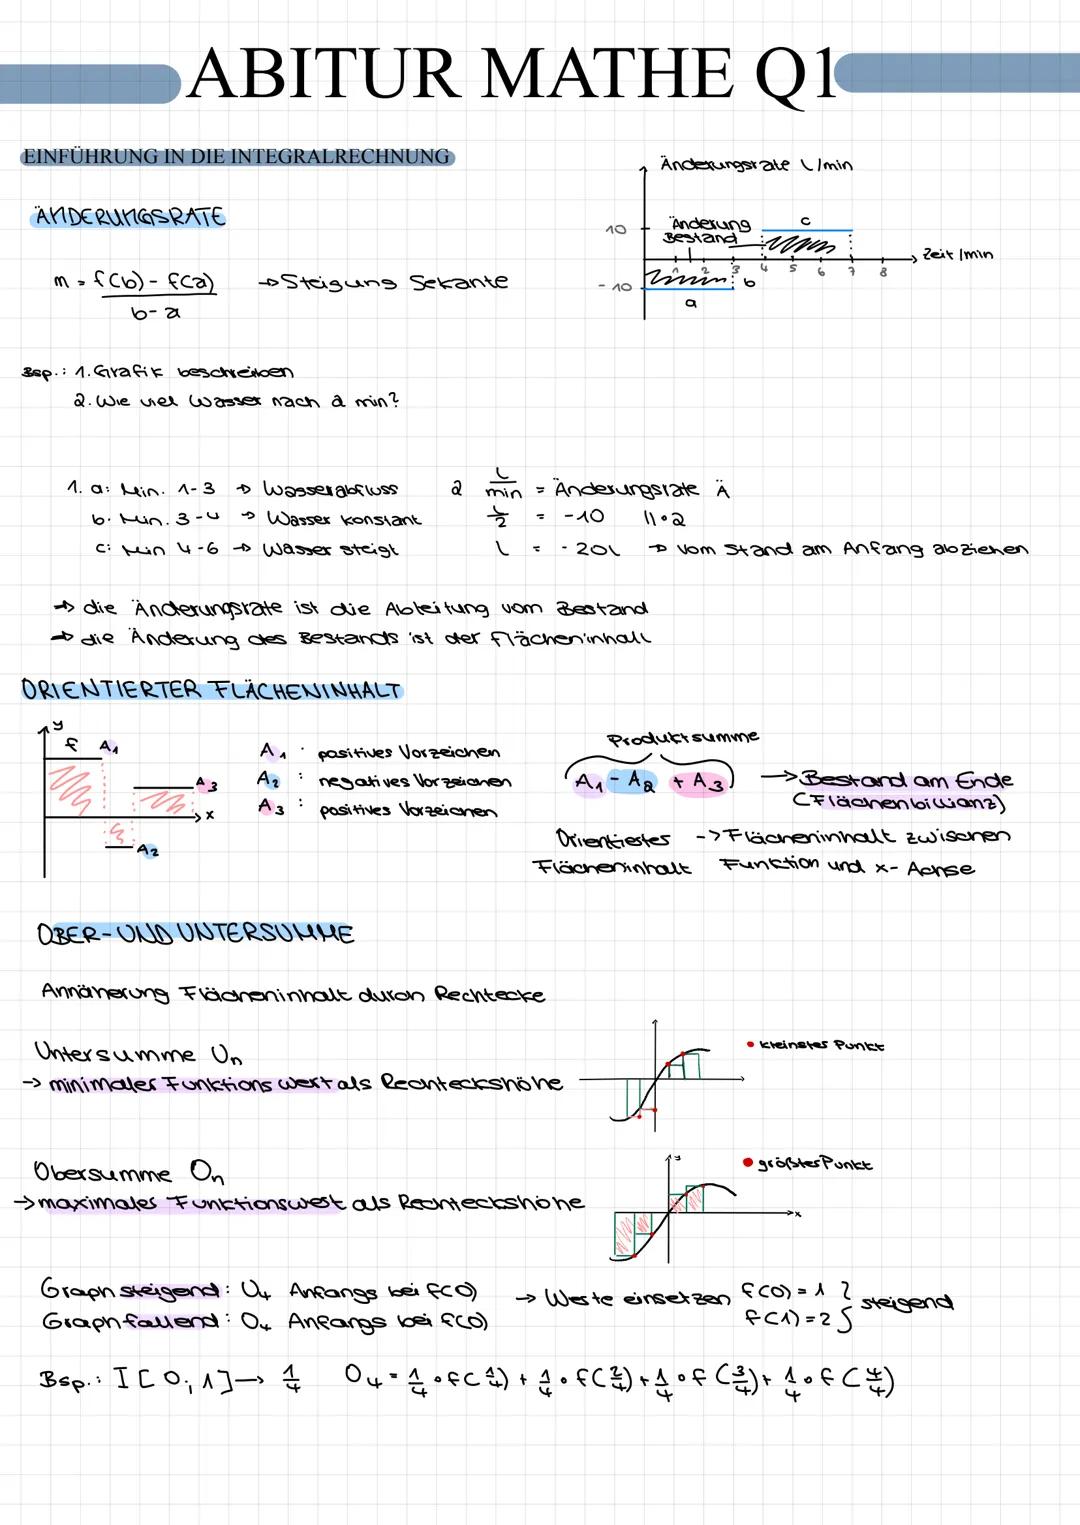 ABITUR MATHE Q1
EINFÜHRUNG IN DIE INTEGRALRECHNUNG
Änderungsrate L/min
ÄNDERUNGSRATE
10
Änderung
Bestand
c
Zeit/min
1 2 3 4 5 6 7 8
-10
b
a
m = f(b) - f(a)
b - a
→ Steigung Sekante
Bsp.: 1. Grafik beschreiben
2. Wie viel Wasser nach 2 min?
1. a: Min. 1-3 → Wasserabfluss
b. Min. 3-4 → Wasser konstant
c: Min 4-6 → Wasser steigt
2 L/min = Änderungsrate Ä
L/2 = -10 ||•2
L = -20L → vom Stand am Anfang abziehen
→ die Änderungsrate ist die Ableitung vom Bestand
→ die Änderung des Bestands ist der Flächeninhalt
ORIENTIERTER FLÄCHENINHALT
y
f A₁
A₃
x
A₂
A₁ : positives Vorzeichen
A₂ : negatives Vorzeichen
A₃ : positives Vorzeichen
Produktsumme
(A₁ - A₂ + A₃) → Bestand am Ende
(Flächenbillianz)
Orientiertes -> Flächeninhalt zwischen
Flächeninhalt Funktion und x-Achse
OBER- UND UNTERSUMME
Annäherung Flächeninhalt durch Rechtecke
Untersumme Un
→ minimaler Funktionswert als Rechteckshöhe
• kleinster Punkt
Obersumme On
→ maximales Funktionswert als Rechteckshöhe
y
x
• größter Punkt
Graph steigend: U₄ Anfangs bei f(0)
Graph fallend: O₄ Anfangs bei f(0)
→ Werte einsetzen f(0) = 1
f(1) = 2
steigend
Bsp.: I [0; 1] → 1/4 O₄ = 1/4 • f(1/4) + 1/4 • f(2/4) + 1/4 • f(3/4) + 1/4 • f(4/4)